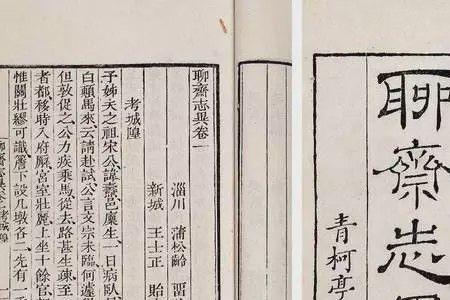 聊齋志
青柯亭
聊齋志異卷一
淄川 蒲松齡 畱
新城 王士正 貽
考城隍
予姊丈之祖宋公諱燾邑廩生一日病臥
白顛馬來云請赴試公言文宗未臨何遽
但敦促之公力疾乘馬從去路甚生疎至
者都移時入府廨宮室壯麗上坐十餘官
惟關壯繆可識簷下設几墩各二先有一
聊齋志異卷一 考城隍